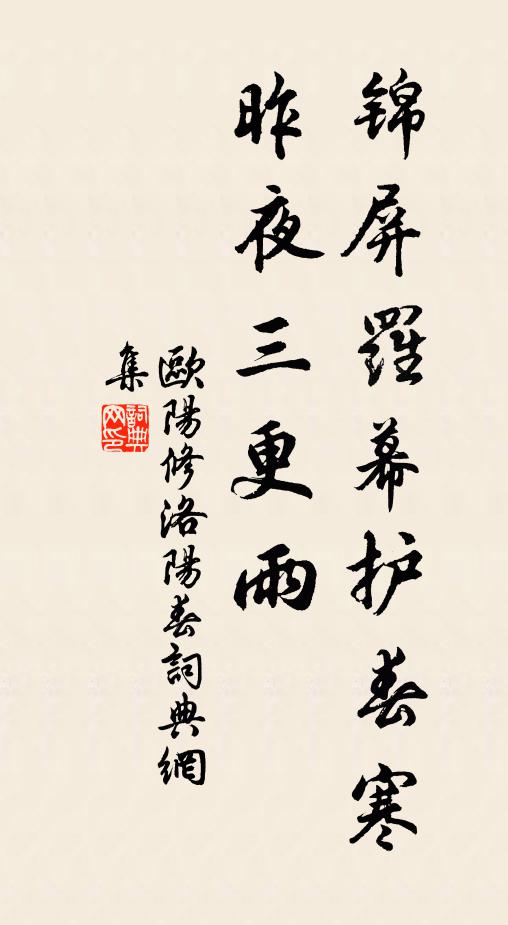 锦屏羅幕护春寒
昨夜三更雨
歐陽修洛陽春詞典網
集
詞典
网印